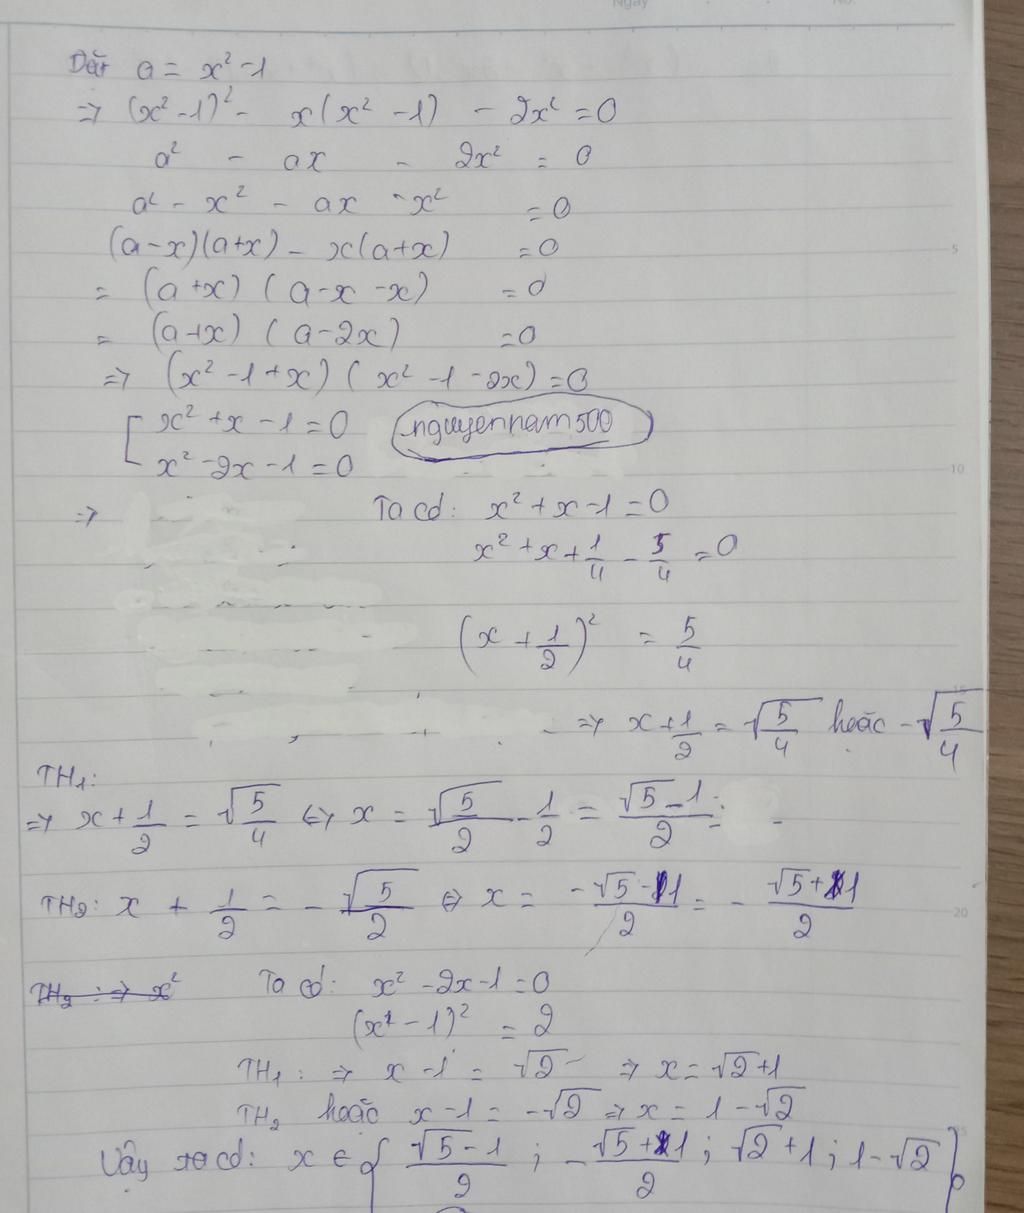 Đặt a = x² - 1
=> (x² - 1)² - x(x² - 1) - 2x² = 0
a² - ax - 2x² = 0
a² - x² - ax - x² = 0
(a - x)(a + x) - x(a + x) = 0
= (a + x) (a - x - x) = 0
= (a + x) (a - 2x) = 0
=> (x² - 1 + x) (x² - 1 - 2x) = 0
[ x² + x - 1 = 0 nguyennam500
x² - 2x - 1 = 0
=> Ta có: x² + x - 1 = 0
x² + x + 1/4 - 5/4 = 0
(x + 1/2)² = 5/4
=> x + 1/2 = √5/4 hoặc - √5/4
TH1:
=> x + 1/2 = √5/4 <=> x = √5/2 - 1/2 = √5 - 1/2 =
TH2: x + 1/2 = - √5/2 <=> x = -√5 - 1/2 = - √5 + 1/2
TH2 : => x² Ta có: x² - 2x - 1 = 0
(x - 1)² = 2
TH1 : => x - 1 = √2 => x = √2 + 1
TH2 hoặc x - 1 = -√2 => x = 1 - √2
Vậy ta có: x ∈ { √5 - 1/2 ; - √5 + 1/2 ; √2 + 1 ; 1 - √2 }